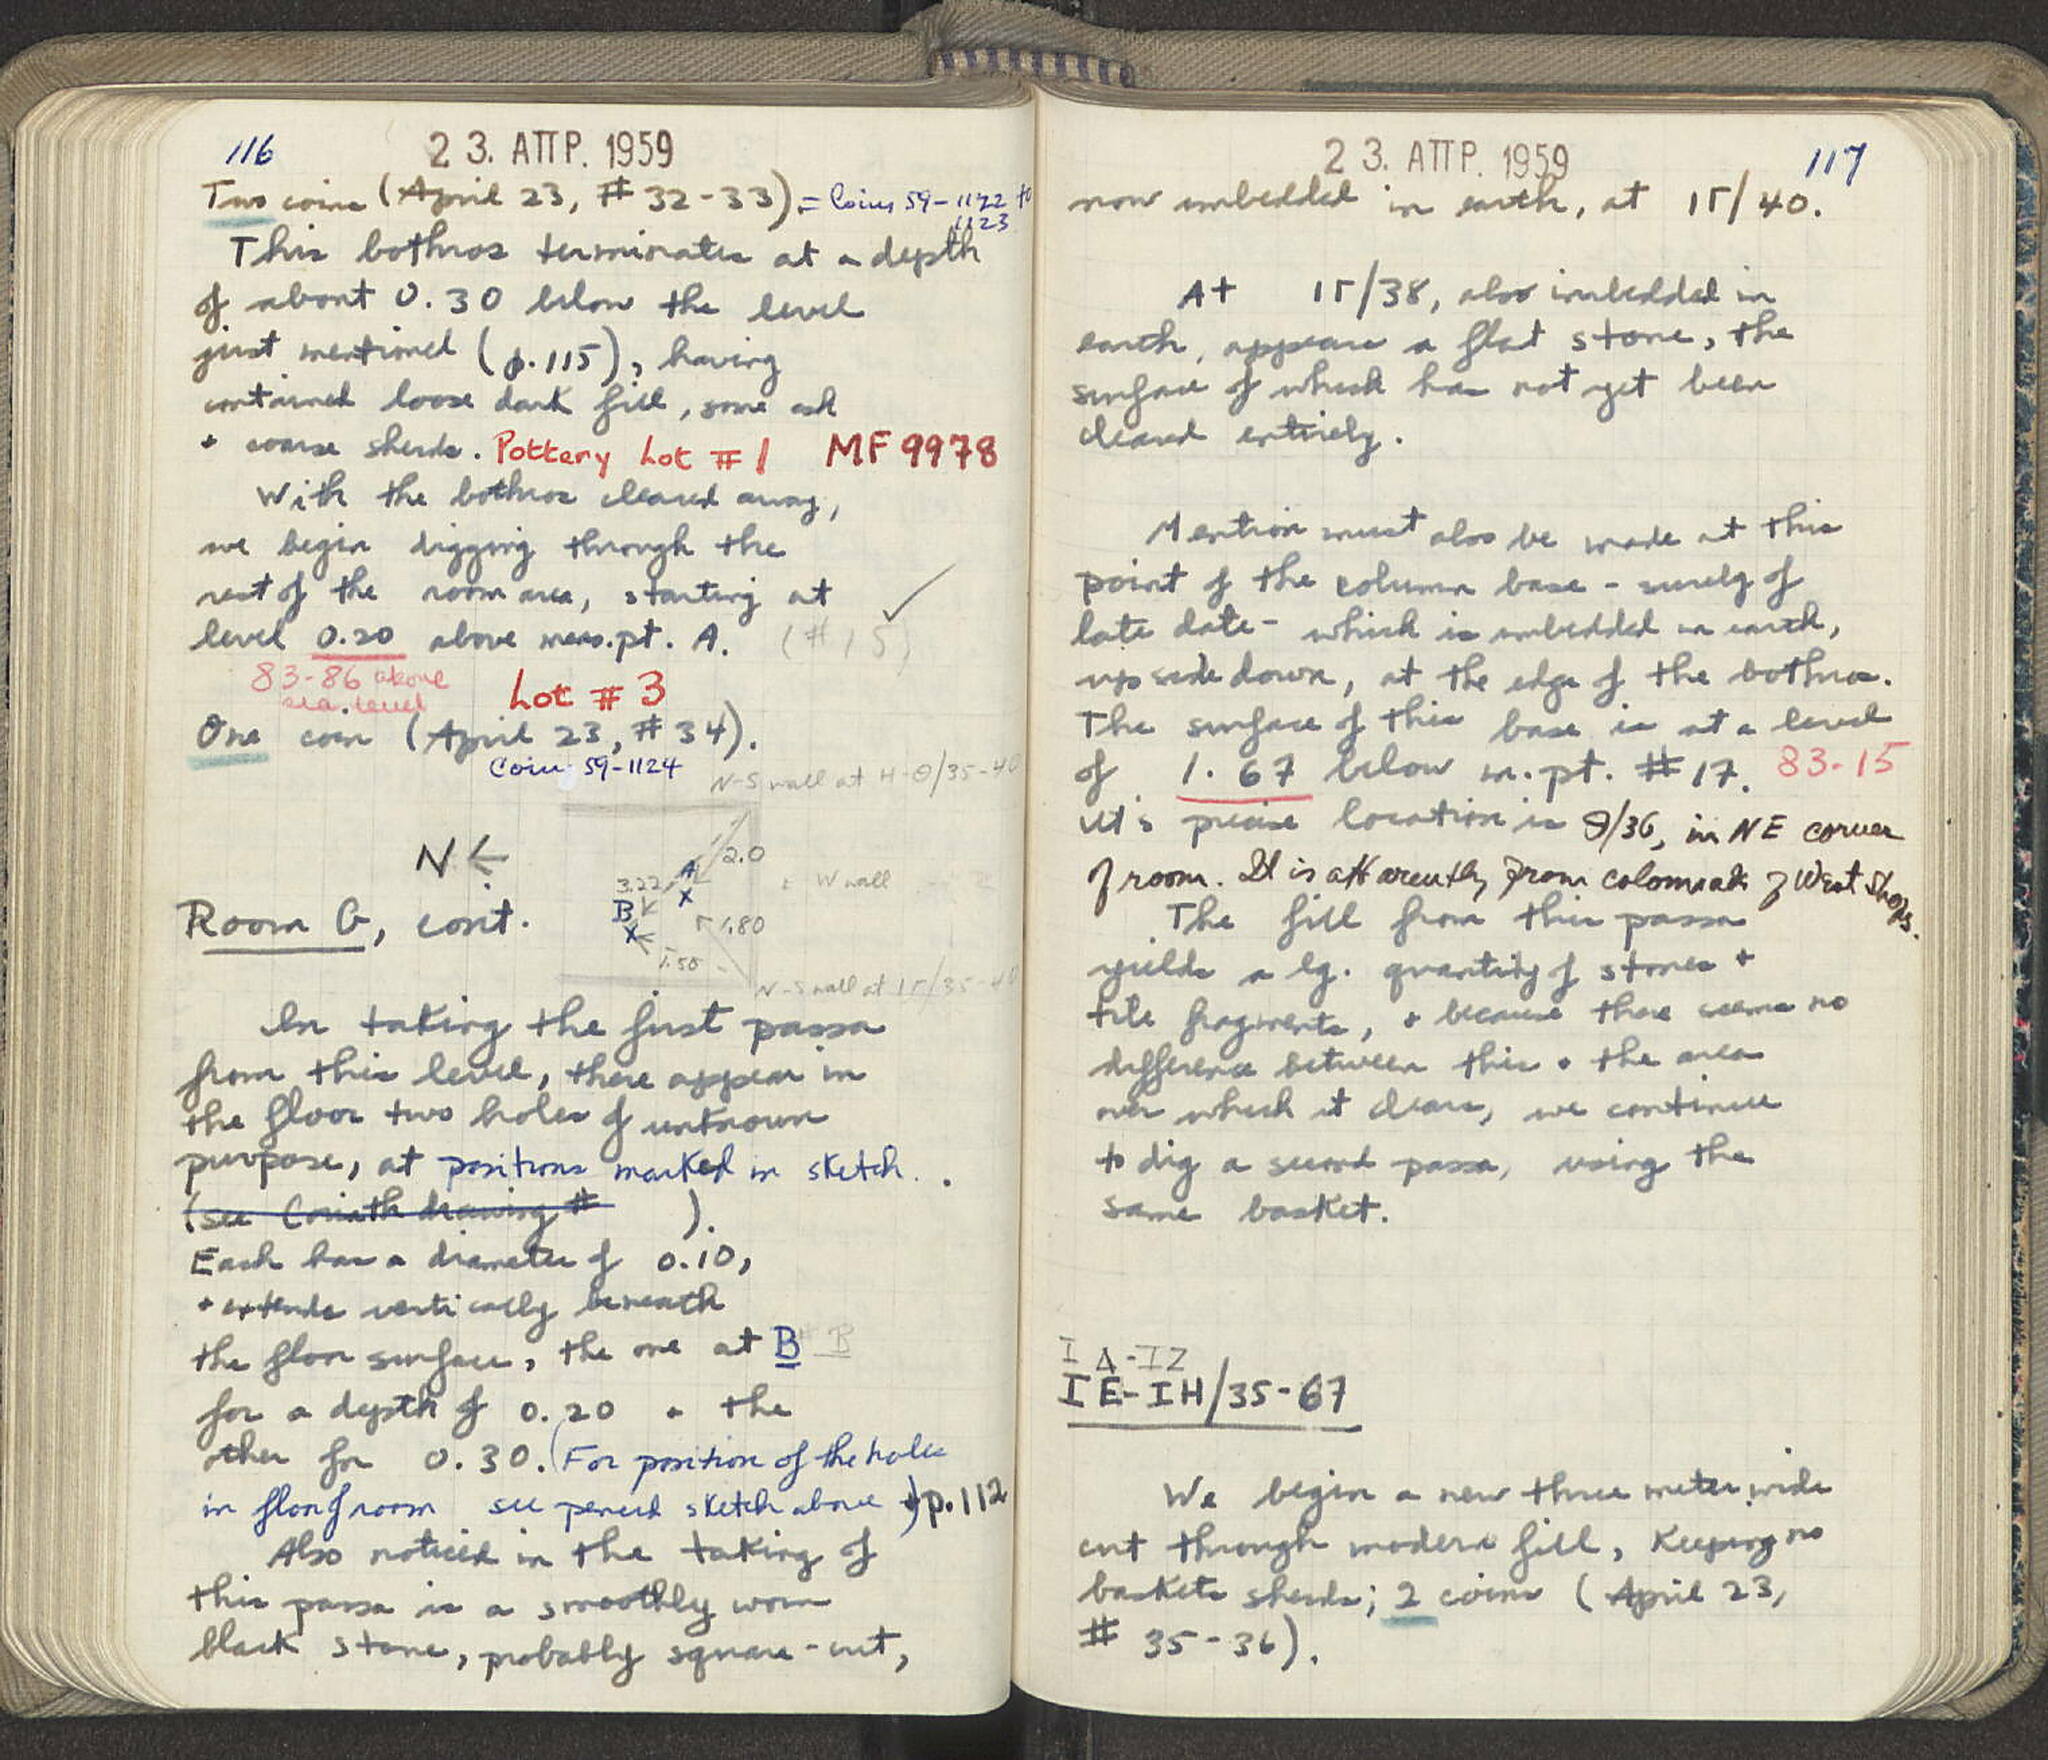 116
23. ΑΠΡ. 1959
Two coins (April 23, # 32-33). = Coins 59-1122 to
1123
This bothros terminates at a depth
of about 0.30 below the level
just mentioned (p. 115), having
contained loose dark fill, some ash
+ coarse sherds. Pottery Lot # 1 MF 9978
With the bothros cleared away,
we begin digging through the
rest of the room area, starting at
level 0.20 above meas. pt. A. (# 15)
83-86 above
sea level
Lot # 3
One coin (April 23, # 34).
Coin 59-1124
N-S wall at H-Θ/35-40
N ←
2.0
A
X
3.22
B
X
W wall
1.80
1.50
N-S wall at ΙΓ/35-40
Room G, cont.
In taking the first passa
from this level, there appear in
the floor two holes of unknown
purpose, at positions marked in sketch.
(see Corinth drawing # ).
Each has a diameter of 0.10,
+ extends vertically beneath
the floor surface, the one at B B
for a depth of 0.20 + the
other for 0.30. (For position of the holes
in floor of room see pencil sketch above + p. 112
Also noticed in the taking of
this passa is a smoothly worn
black stone, probably square-cut,
23. ΑΠΡ. 1959
117
now imbedded in earth, at ΙΓ/40.
At ΙΓ/38, also imbedded in
earth, appears a flat stone, the
surface of which has not yet been
cleared entirely.
Mention must also be made at this
point of the column base - surely of
late date - which is imbedded in earth,
upside down, at the edge of the bothros.
The surface of this base is at a level
of 1.67 below m. pt. # 17. 83-15
It's precise location is Θ/36, in NE corner
of room. It is apparently from colonnade of West Shops.
The fill from this passa
yields a lg. quantity of stones +
tile fragments, + because there seems no
difference between this + the area
over which it clears, we continue
to dig a second passa, using the
same basket.
ΙΔ-ΙΖ
ΙΕ-ΙΗ/35-67
We begin a new three meter wide
cut through modern fill, keeping no
baskets sherds; 2 coins (April 23,
# 35-36).